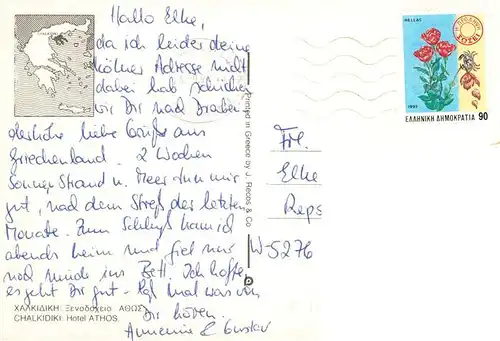 Hallo Elke,
da ich leider deine
Kölner Adresse nicht
dabei hab schicken
wir Dir nach
liebe Grüße aus
Griechenland. 2 Wochen
Sonne Strand u. Meer tun mir
gut, nach dem Streß der letzten
Monate. Zum Schluß kam ich
abends heim und fiel nur
noch müde ins Bett. Ich hoffe
es geht Dir gut - laß mal was von
Dir hören.
Annemie & Gustav
ΧΑΛΚΙΔΙΚΗ: Ξενοδοχείο ΑΘΩΣ
CHALKIDIKI: Hotel ATHOS.
Printed in Greece by J. Rekos & Co
HELLAS
1992
ΕΛΛΗΝΙΚΗ ΔΗΜΟΚΡΑΤΙΑ 90
Frl.
Elke
Reps
W-5276